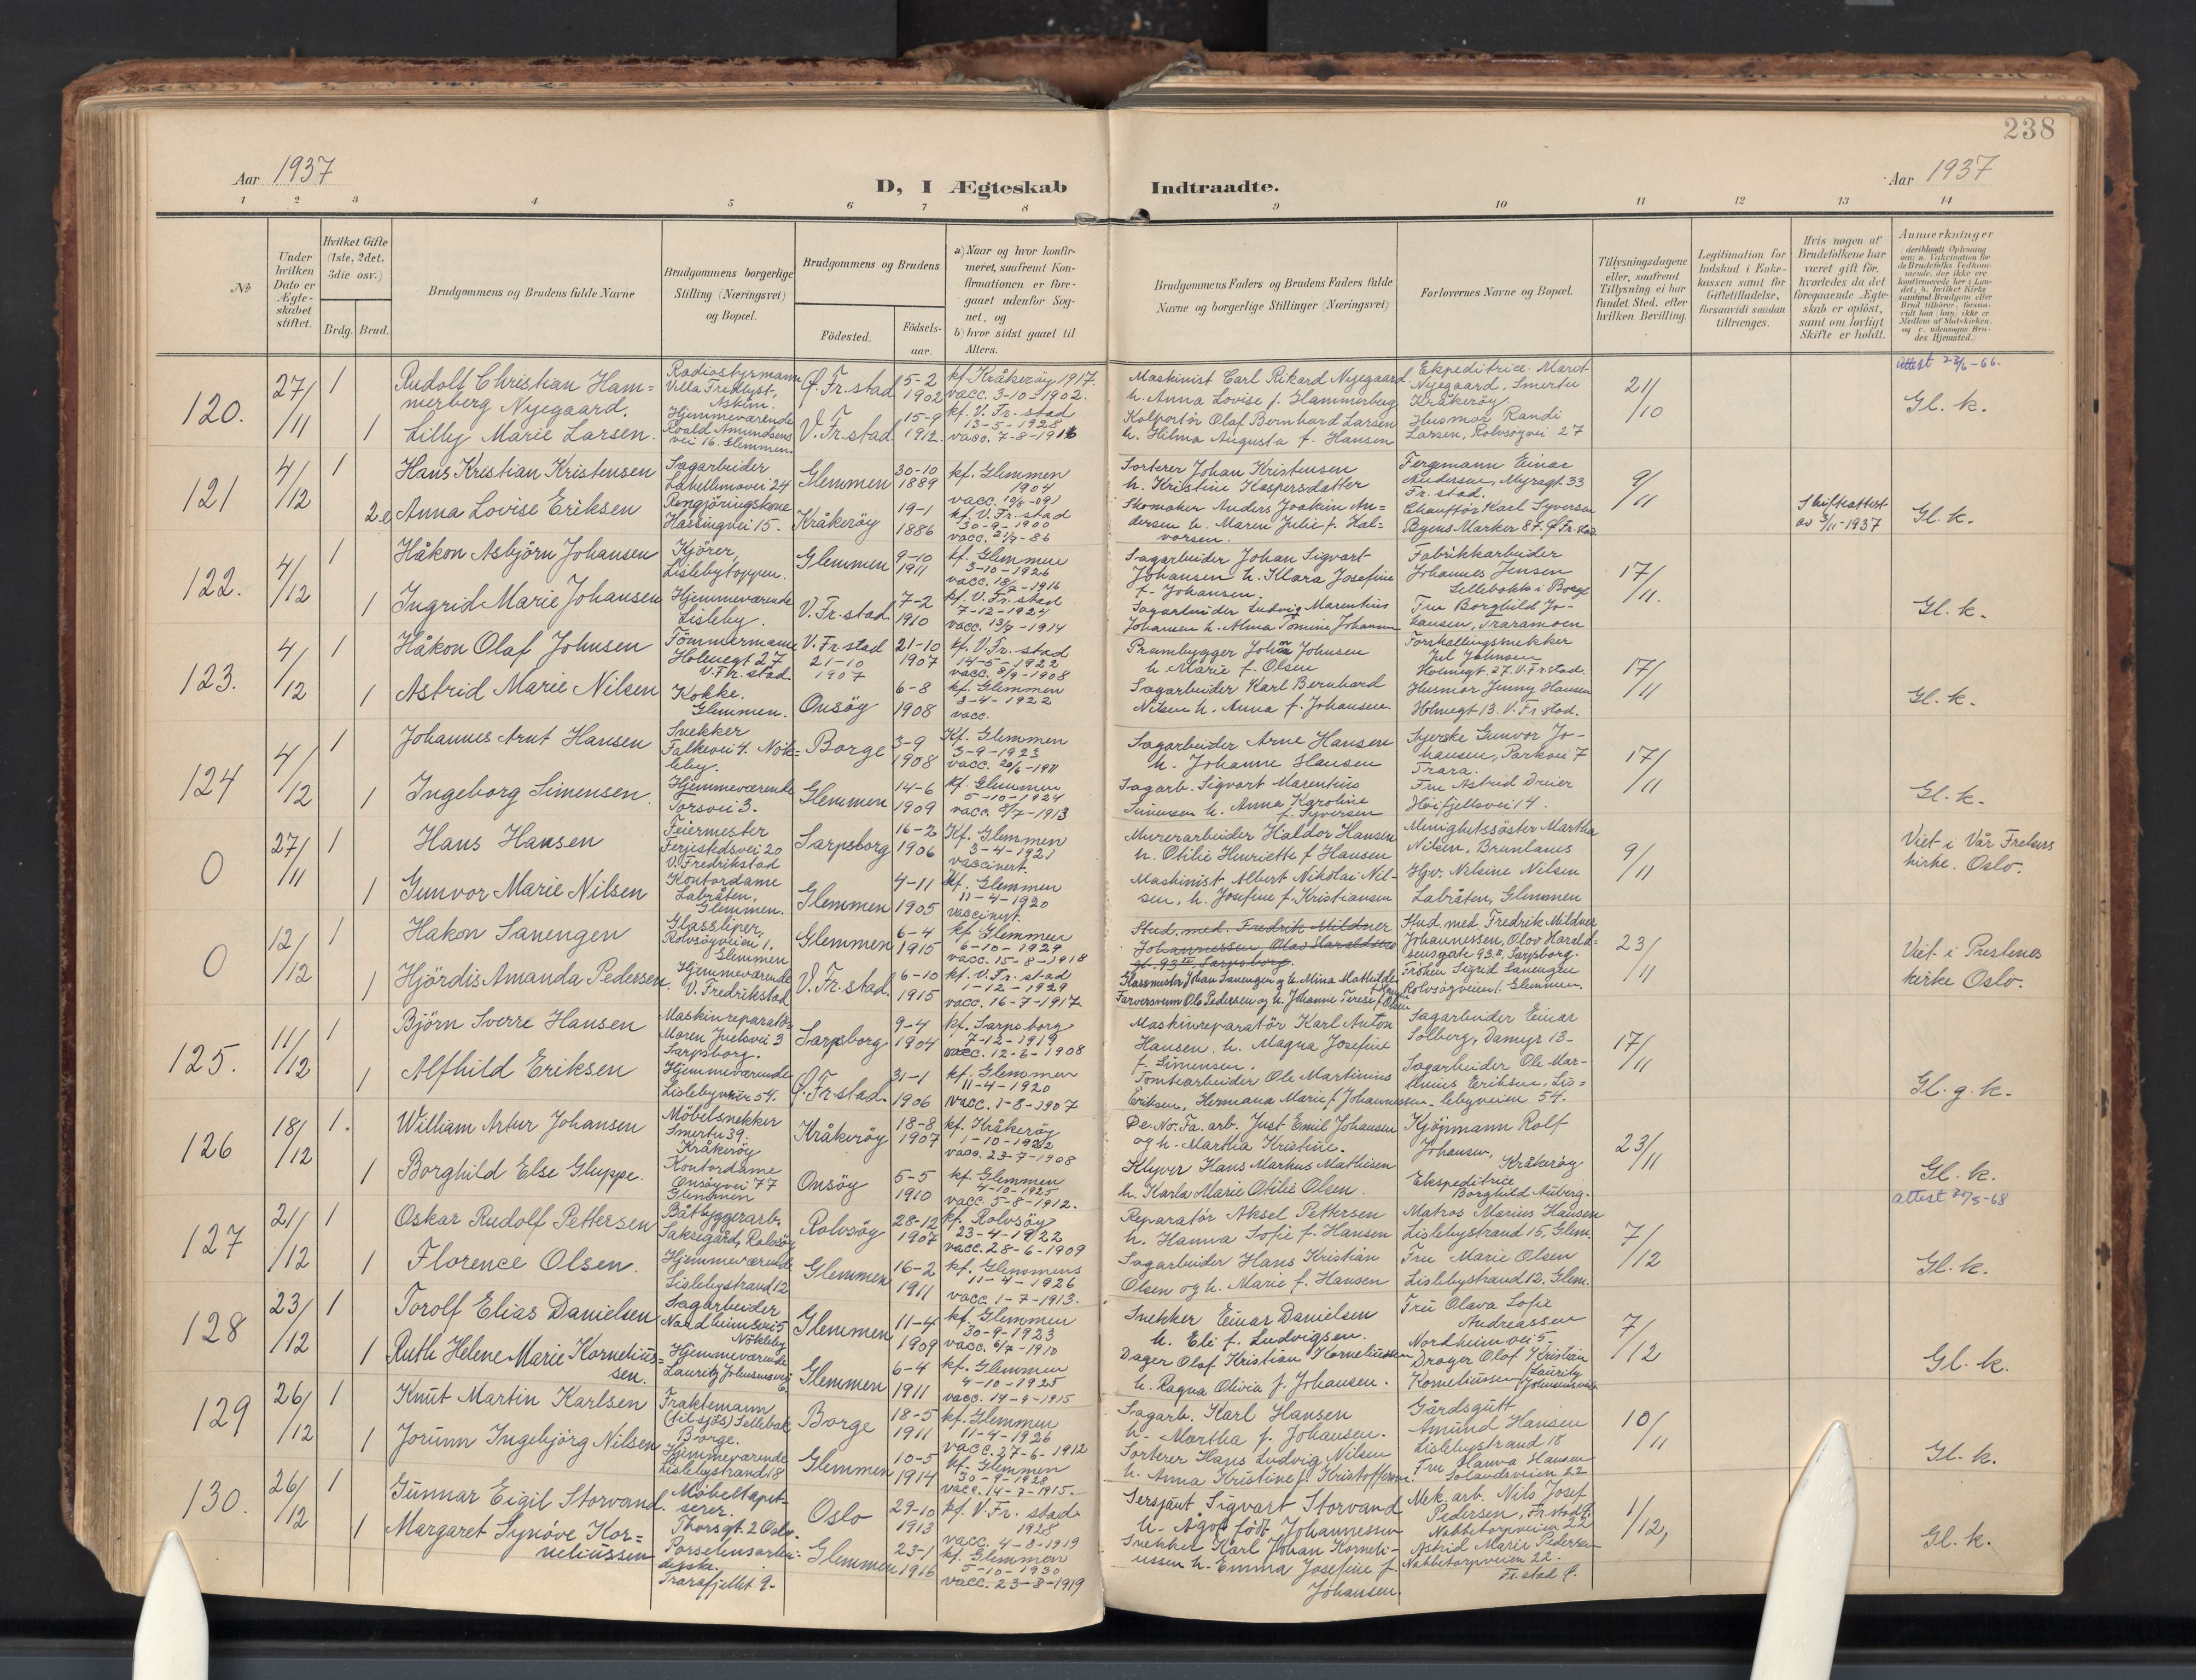 238
Aar 1937
D, I Ægteskab
Indtraadte.
Aar 1937
1 2 3 4 5 6 7 8 9 10 11 12 13 14
No
Under hvilken Dato er Ægteskabet stiftet.
Hvilket Gifte (1ste, 2det, 3die osv.)
Brdg. Brud.
Brudgommens og Brudens fulde Navne
Brudgommens borgerlige Stilling (Næringsvei) og Bopæl.
Brudgommens og Brudens
Födested.
Födselsaar.
a) Naar og hvor konfirmeret, saafremt Konfirmationen er foregaaet udenfor Sognet, og
b) hvor sidst gaaet til Alters.
Brudgommens Faders og Brudens Faders fulde Navne og borgerlige Stillinger (Næringsvei)
Forlovernes Navne og Bopæl.
Tillysningsdagene eller, saafremt Tillysning ei har fundet Sted, efter hvilken Bevilling.
Legitimation for Indskud i Enkekassen samt for Giftetilladelse, forsaavidt saadan tiltrænges.
Hvis nogen af Brudefolkene har været gift för, hvorledes da det foregaaende Ægteskab er oplöst, samt om lovligt Skifte er holdt.
Anmerkninger
120. 27/11 1
Rudolf Christian Ham=
merberg Nyegaard.
Radiostyrmann
Villa Fredlyst,
Askim.
Ø. Fr.stad 5-2 1902
kf. Kråkeröy 1917.
vacc. 3-10-1902.
Maskinist Carl Rikard Nyegaard
h. Anna Lovise f. Hammerberg
Ekspeditrice Marit
Nyegaard, Smertu
Kråkeröy
21/10
Attest 23/6-66.
Gl. k.
1 Lilly Marie Larsen.
Hjemmeværende
Roald Amundsens
vei 16. Glemmen.
V. Fr.stad 15-9 1912
kf. V. Fr. stad
13-5-1928
vacc. 7-8-1916
Kolportör Olaf Bernhard Larsen
h. Hilma Augusta f. Hansen
Husmor Randi
Larsen, Rolvsöyvei 27
121 4/12 1
Hans Kristian Kristensen
Sagarbeider
Glemmen 30-10 1889
kf. Glemmen
1904
vacc. 10/8-091
Sorterer Johan Kristensen
h. Kristine Kaspersdatter
Fergemann Einar
Andersen, Myragt 33
Fr. stad.
9/11
2e Anna Lovise Eriksen
Rengjöringskone
Hassingvei 15.
Kråkeröy 19-1 1886
kf. V. Fr. stad
30-9-1900
vacc. 21/7-86
Skomaker Anders Joakim An=
dersen h. Maren Julie f. Hal=
vorsen.
Chaufför Karl Syversen
Byens Marker 87. Ø Fr. stad
Skifteattest
av 3/11-1937
Gl. k.
122. 4/12 1
Håkon Asbjörn Johansen
Kjörer,
Lislebytoppen.
Glemmen 9-10 1911
kf. Glemmen
3-10-1926
vacc. 18/7-1916
Sagarbeider Johan Sigvart
Johansen h. Klara Josefine
f. Johansen.
Fabrikkarbeider
Johannes Jensen
Sellebakk i Borge
17/11.
1 Ingrid Marie Johansen
Hjemmeværende
Lisleby.
V. Fr.stad. 7-2 1910
kf. V. Fr. stad
7-12-1924
vacc. 13/7-1914
Sagarbeider Ludvig Marentius
Johansen h. Alma Tomine Johansen
Fru Borghild Jo-
hansen, Traramoen
Gl. k.
123. 4/12 1
Håkon Olaf Johnsen
Tömmermann
Holmegt 27
V. Fr. stad.
V. Fr. stad
21-10
1907
21-10 1907
kf. V. Fr. stad
14-5-1922
vacc. 8/9-1908
Prambygger Johan Johnsen
h. Marie f. Olsen
Forskallingssnekker
Jul Johnsen
Holmegt. 27. V. Fr. stad.
17/11
1 Astrid Marie Nilsen
Kokke.
Glemmen.
Onsöy 6-8 1908
kf. Glemmen
3-4-1922
vacc.
Sagarbeider Karl Bernhard
Nilsen h. Anna f. Johansen.
Husmor Jenny Hansen
Holmegt 13. V. Fr. stad.
Gl. k.
124 4/12 1
Johannes Arnt Hansen
Snekker
Falkevei 4. Nök=
leby.
Borge 3-9 1908
Kf. Glemmen
3-9-1923
Sagarbeider Arne Hansen
h. Johanne Hansen
Syerske Gunvor Jo-
hansen, Parkvei 7
Trara.
17/11
1 Ingeborg Simensen.
Hjemmeværende
Torsvei 3.
Glemmen 14-6 1909
kf. Glemmen
5-10-1924
vacc. 8/7-1913
Sagarb. Sigvart Marentius
Simensen h. Anna Karoline
f. Syversen
Fru Astrid Dreier
Höifjellsvei 14.
Gl. k.
0 27/11 1
Hans Hansen
Feiermester
Ferjestedsvei 20
V. Fredrikstad
Sarpsborg 16-2 1906
Kf. Glemmen
3-4-1921
vaccinert.
Murerarbeider Haldor Hansen
h. Otilie Henriette f Hansen
Menighetssöster Martha
Nilsen, Brunlanes
9/11
Viet i Vår Frelsers
kirke. Oslo.
1 Gunvor Marie Nilsen
Kontordame
Labråten,
Glemmen.
Glemmen 4-11 1905
kf. Glemmen
11-4-1920
vaccinert.
Maskinist Albert Nikolai Nil-
sen, h. Josefine f. Kristiansen
Hjv. Nilsine Nilsen
Labråten, Glemmen
0 12/12 1
Hakon Sanengen
Glassliper,
Rolvsöyveien 1.
Glemmen
Glemmen 6-4 1915
kf. Glemmen
6-10-1929
vacc. 15-8-1918
Stud. med. Fredrik Mildner
Johannessen, Olav Haraldsens
gt 93 II Sarpsborg.
Stud. med. Fredrik Mildner
Johannessen, Olov Harald=
sensgate 93 II, Sarpsborg.
23/11
Viet i Prestenes
kirke Oslo.
1 Hjördis Amanda Pedersen.
Hjemmeværende
V. Fredrikstad
V. Fr. stad. 6-10 1915
kf. V. Fr. stad
1-12-1929
vacc. 16-7-1917.
Glassmester Johan Sanengen og h. Mina Mathilde
Farversvenn Ole Pedersen og h. Johanne Terese f. Olsen
Fröken Sigrid Sanengen
Rolvsöyveien 1. Glemmen.
125. 11/12
Björn Sverre Hansen
Maskinreparatör
Maren Juelsvei 3
Sarpsborg.
Sarpsborg 9-4 1904
kf. Sarpsborg
7-12-1919
vacc. 12-6-1908
Maskinreparatör Karl Anton
Hansen. h. Magna Josefine
f. Simensen.
Sagarbeider Einar
Solberg, Damyr 13-
17/11
1 Alfhild Eriksen
Hjemmeværende
Lislebyveien 54.
Ø. Fr.stad. 31-1 1906
kf. Glemmen
11-4-1920
vacc. 1-8-1907
Tomtearbeider Ole Martinius
Eriksen, Hermana Marie f. Johannessen
Sagarbeider Ole Mar-
tinius Eriksen, Lis=
lebyveien 54.
Gl. g. k.
126 18/12 1.
William Artur Johansen
Möbelsnekker
Smertu 39,
Kråkeröy
Kråkeröy 18-8 1907
kf. Kråkeröy
1-10-1922
vacc. 23-7-1908
De No. Fa. arb. Just Emil Johansen
og h. Martha Kristine.
Kjöpmann Rolf
Johansen,
Kråkeröy
23/11
1 Borghild Else Gluppe.
Kontordame
Onsöyvei 77
Glemmen
Onsöy 5-5 1910
kf. Glemmen
4-10-1925
vacc. 5-8-1912.
Klyver Hans Markus Mathisen
h. Karla Marie Otilie Olsen.
Ekspeditrice
Borghild Auberg.
Gl. k.
127 21/12 1
Oskar Rudolf Pettersen
Båtbyggerarb.
Saksegård, Rolvsöy
Rolvsöy 28-12 1907
kf. Rolvsöy
23-4-1922
vacc. 28-6-1909
Reparatör Aksel Pettersen
h. Hanna Sofie f. Hansen
Matros Marius Hansen
Lislebystrand 15, Glem.
7/12
1 Florence Olsen.
Hjemmeværende
Lislebystrand 12
Glemmen 16-2 1911
kf. Glemmens
11-4-1926
vacc. 1-7-1913.
Sagarbeider Hans Kristian
Olsen og h. Marie f. Hansen
Fru Marie Olsen
Lislebystrand 12, Glem.
Gl. k.
128 23/12 1
Torolf Elias Danielsen
Sagarbeider
Nordheimsvei 5
Nökleby
Glemmen 11-4 1909
kf. Glemmen
30-9-1923
vacc. 6/7-1910
Snekker Einar Danielsen
h. Eli f. Ludvigsen.
Fru Olava Sofie
Andreassen
Nordheimvei 5-
7/12
1 Ruth Helene Marie Kornelius=
sen.
Hjemmeværende
Lauritz Johnsensvei 6
Glemmen 6-4 1911
kf. Glemmen
4-10-1925
vacc. 14-9-1915
Dager Olof Kristian Korneliussen
h. Ragna Olivia f. Johansen.
Drager Olof Kristian
Korneliussen Lauritz
Johnsensvei 6
Gl. k.
129 26/12 1
Knut Martin Karlsen
Fraktemann
(til sjös) Sellebak
Borge.
Borge 18-5 1911
kf. Glemmen
11-4-1926
vacc. 27-6-1912
Sagarb. Karl Hansen
h. Martha f. Johansen.
Gårdsgutt
Amund Hansen
Lislebystrand 18
10/11
1 Jorunn Ingebjörg Nilsen
Hjemmeværende
Lislebystrand 18
Glemmen 10-5 1914
kf. Glemmen
30-9-1928
vacc. 14-7-1915.
Sorterer Hans Ludvig Nilsen
h. Anna Kristine f. Kristoffersen.
Fru Hanna Hansen
Solandsveien 22
Gl. k.
130. 26/12 1
Gunnar Eigil Storvand.
Möbeltapet-
serer.
Thorsgt. 2 Oslo.
Oslo 29-10 1913
kf. V. Fr. stad
1928
vacc. 4-8-1919
Sersjant Sigvart Storvand
h. Ågot födt Johannessen
Mek. arb. Nils Josef
Pedersen, Fr.stad Ø.
Nabbetorpveien 22
1/12,
1 Margaret Synöve Kor=
neliussen
Porselensarbei-
derske.
Trarafjellet 9-
Glemmen 23-1 1916
kf. Glemmen
5-10-1930
vacc. 23-8-1919
Snekker Karl Johan Korneli-
ussen h. Emma Josefine f.
Johansen.
Astrid Marie Pedersen
Nabbetorpveien 22.
Fr. stad Ø.
Gl. k.
attest 20/5-68